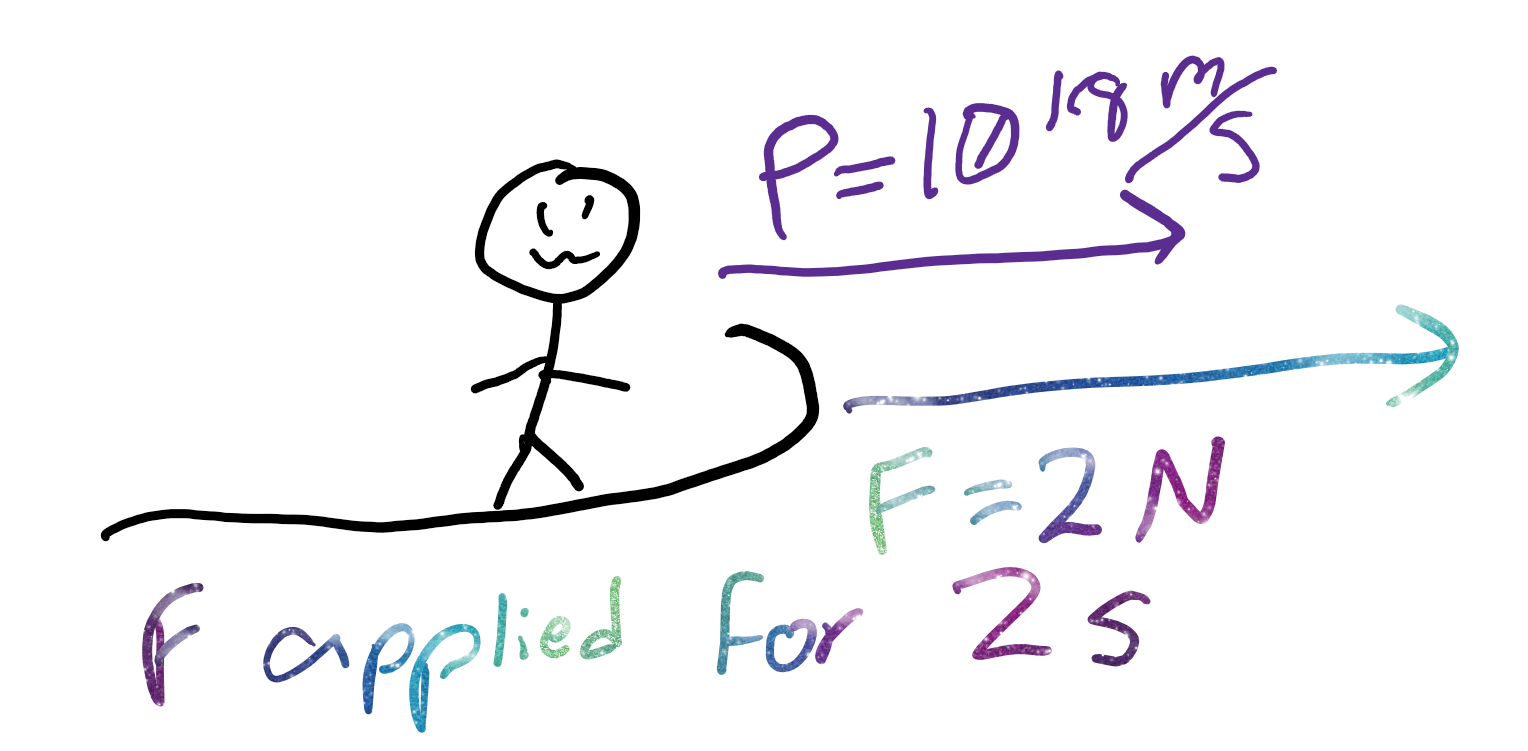 P=10 kg m/s
F=2 N
F applied for 2 s